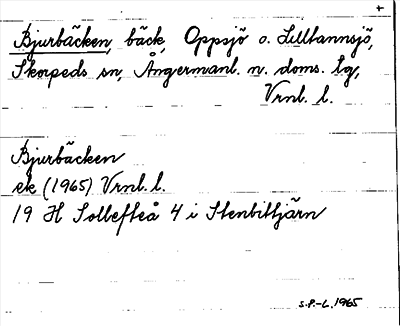 +
Bjurbäcken, bäck, Oppsjö o. Lilltannsjö,
Skorpeds sn, Ångermanl. n. doms. lg,
Vrnl. l.
Bjurbäcken
ek (1965) Vrnl. l.
19 H Sollefteå 4 i Stenbittjärn
S.P.-L. 1965